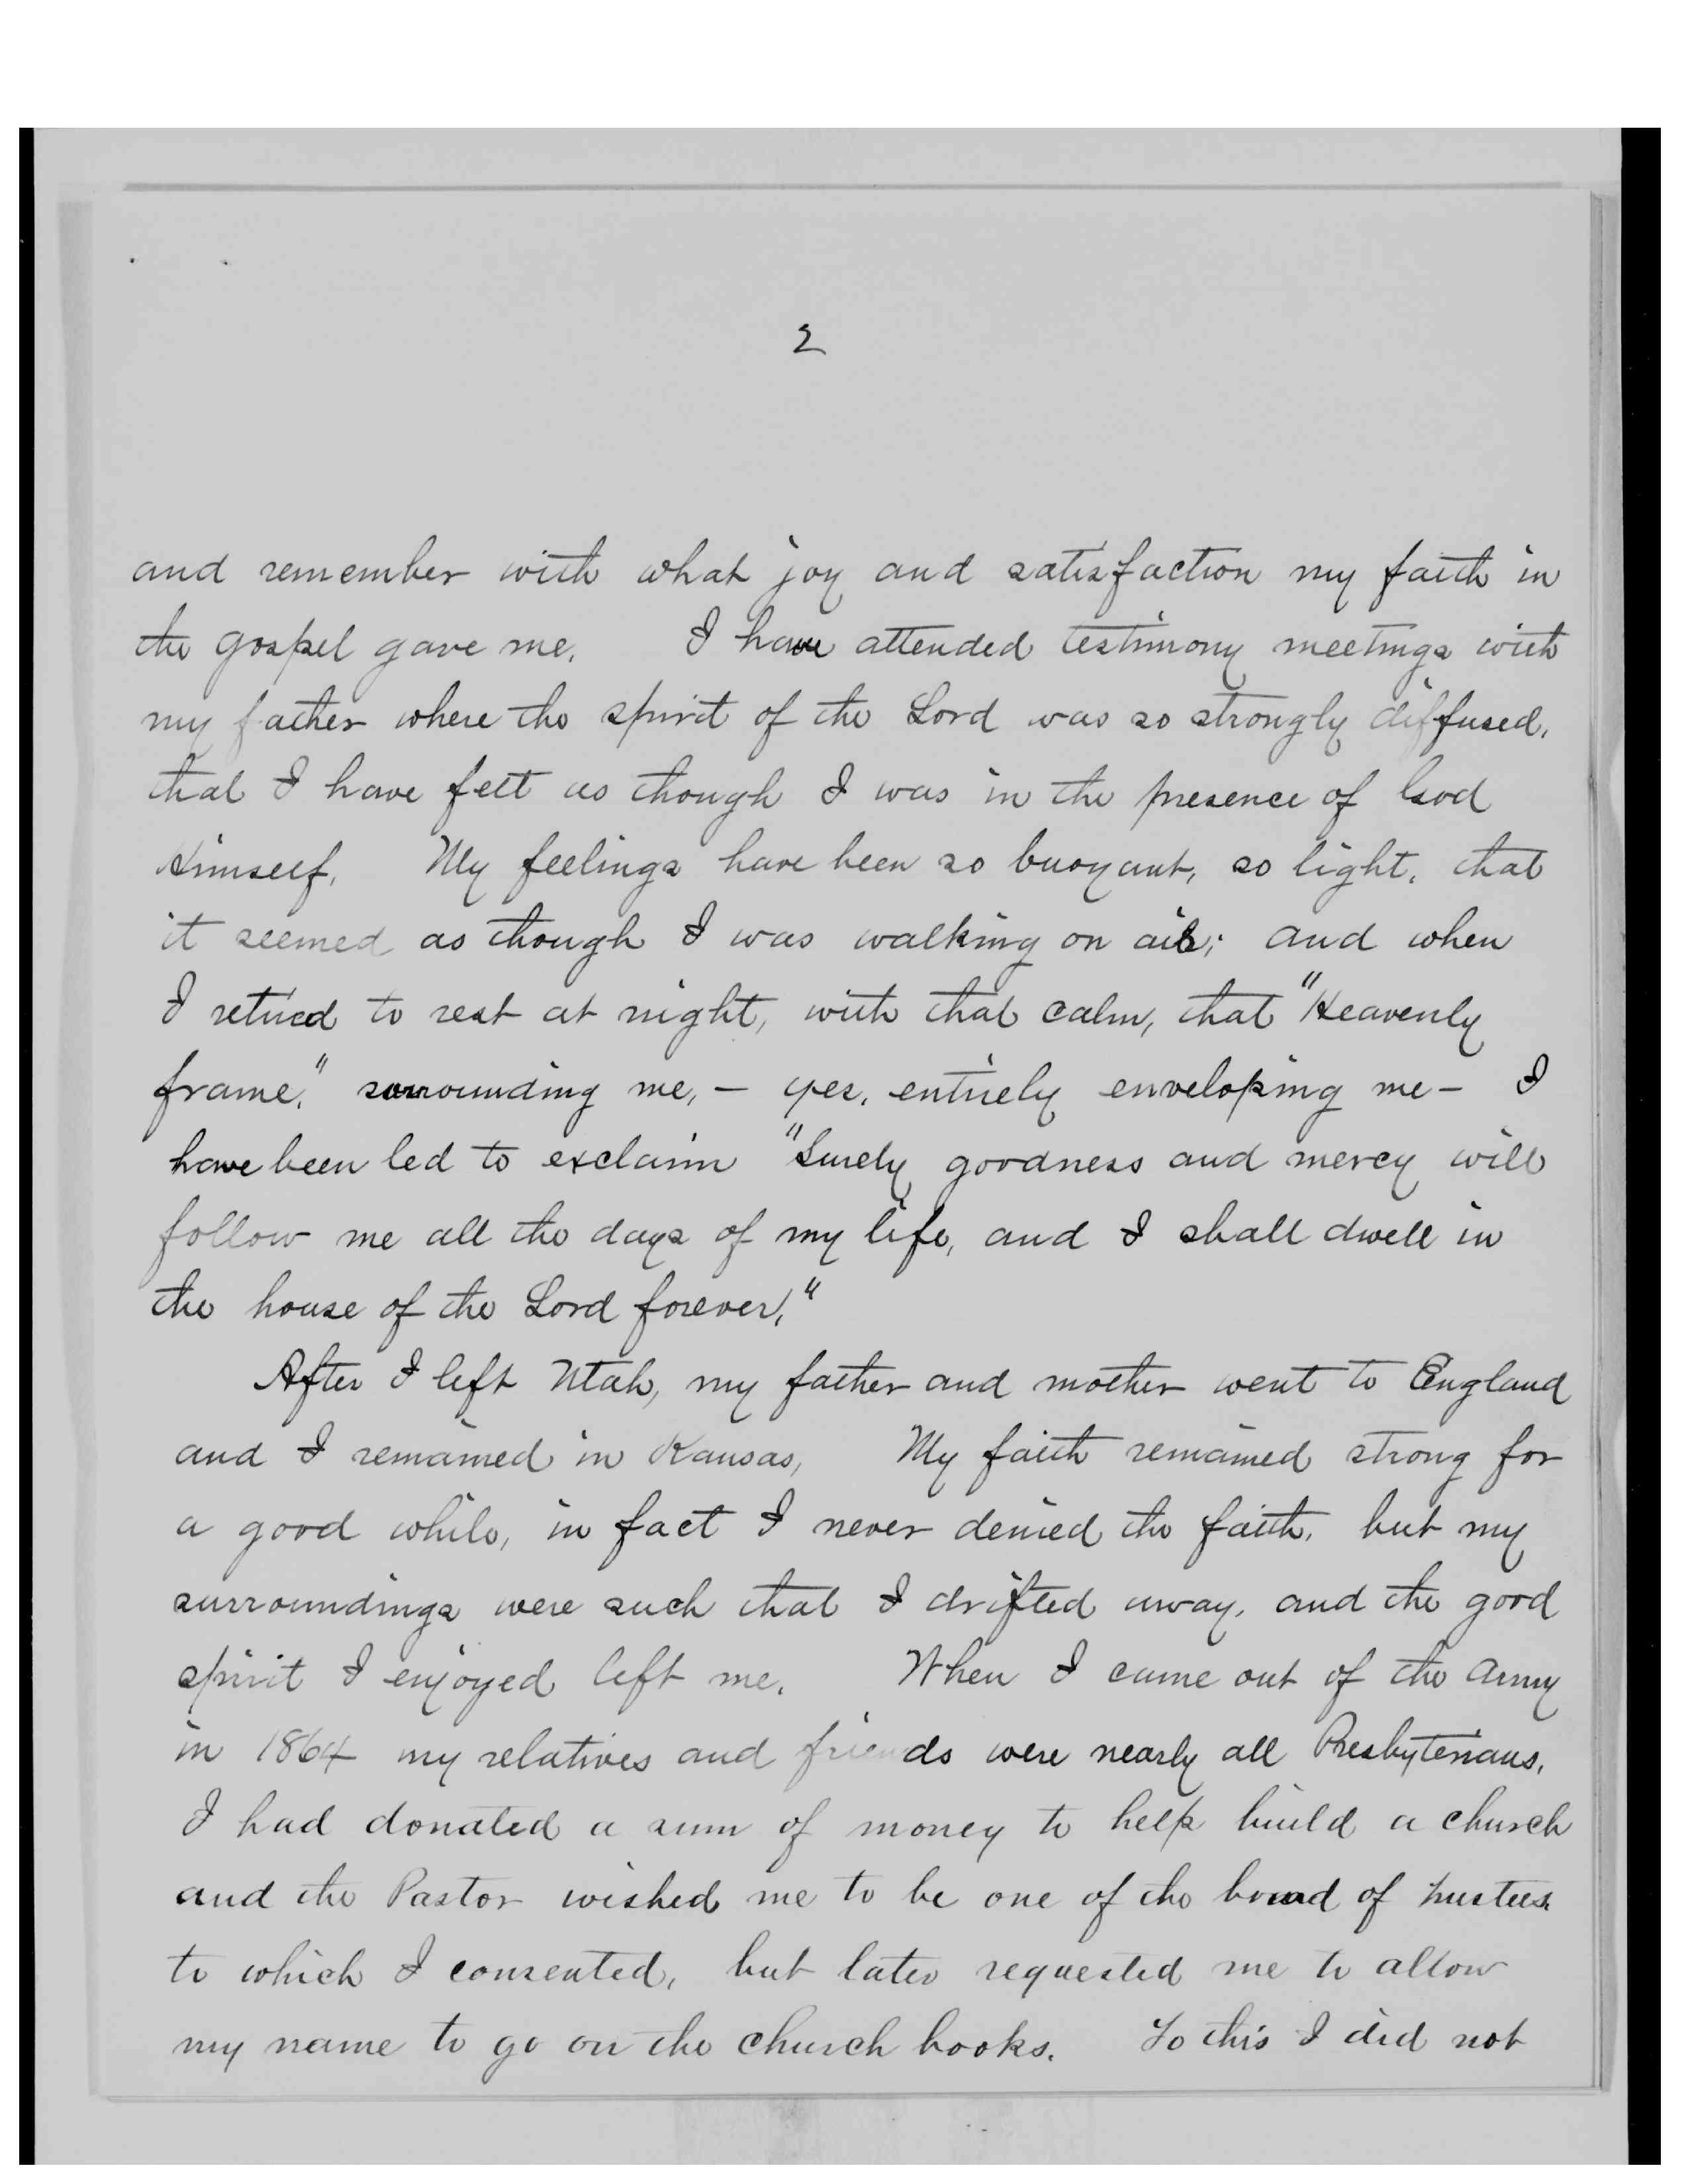 2
and remember with what joy and satisfaction my faith in
the gospel gave me. I have attended testimony meetings with
my father where the spirit of the Lord was so strongly diffused,
that I have felt as though I was in the presence of God
Himself. My feelings have been so buoyant, so light, that
it seemed as though I was walking on air; and when
I retired to rest at night, with that calm, that "Heavenly
frame," surrounding me, — yes, entirely enveloping me — I
have been led to exclaim "Surely goodness and mercy will
follow me all the days of my life, and I shall dwell in
the house of the Lord forever."
After I left Utah, my father and mother went to England
and I remained in Kansas, My faith remained strong for
a good while, in fact I never denied the faith, but my
surroundings were such that I drifted away, and the good
spirit I enjoyed left me. When I came out of the Army
in 1864 my relatives and friends were nearly all Presbyterians.
I had donated a sum of money to help build a church
and the Pastor wished me to be one of the board of trustees.
to which I consented, but later requested me to allow
my name to go on the church books. To this I did not